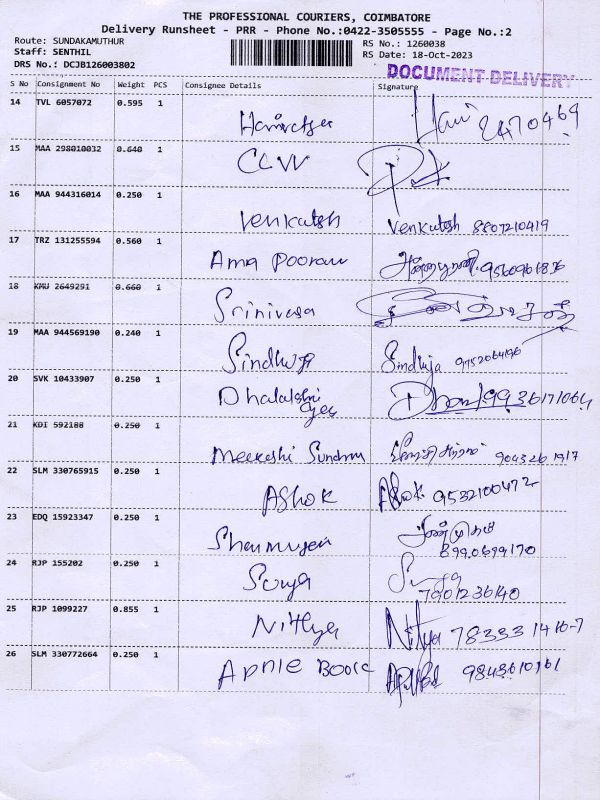 THE PROFESSIONAL COURIERS, COIMBATORE
Delivery Runsheet - PRR - Phone No.:0422-3505555 - Page No.:2
Route: SUNDAKAMUTHUR RS No.: 1260038
Staff: SENTHIL RS Date: 18-Oct-2023
DRS No.: DCJB126003802 DOCUMENT DELIVERY
S No Consignment No Weight PCS Consignee Details Signature
14 TVL 6057072 0.595 1
Hari
15 MAA 298010032 0.640 1
CCW
16 MAA 944316014 0.250 1
Venkatesh Venkatesh 8807210419
17 TRZ 131255594 0.560 1
Ama Pooran அன்னபூரணி
18 KMU 2649291 0.660 1
Srinivasa
19 MAA 944569190 0.240 1
Sindhuja Sindhuja
20 SVK 10433907 0.250 1
21 KDI 592188 0.250 1
Sundram
22 SLM 330765915 0.250 1
AShok AShok 9532100472
23 EDQ 15923347 0.250 1
சண்முகம்
8990699170
24 RJP 155202 0.250 1
Surya Surya
25 RJP 1099227 0.855 1
Nithya Nitya
26 SLM 330772664 0.250 1
Apple Book 9843610161